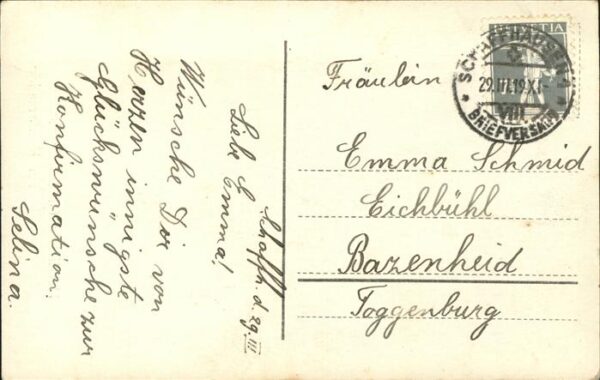 Schaffh. d. 29. III.
Liebe Emma!
Wünsche Dir von
Herzen innigste
Glückswünsche zur
Konfirmation.
Selina.
HELVETIA
SCHAFFHAUSEN 1
29.III.19.XI-
VIII
BRIEFVERSAND
Fräulein
Emma Schmid
Eichbühl
Bazenheid
Toggenburg